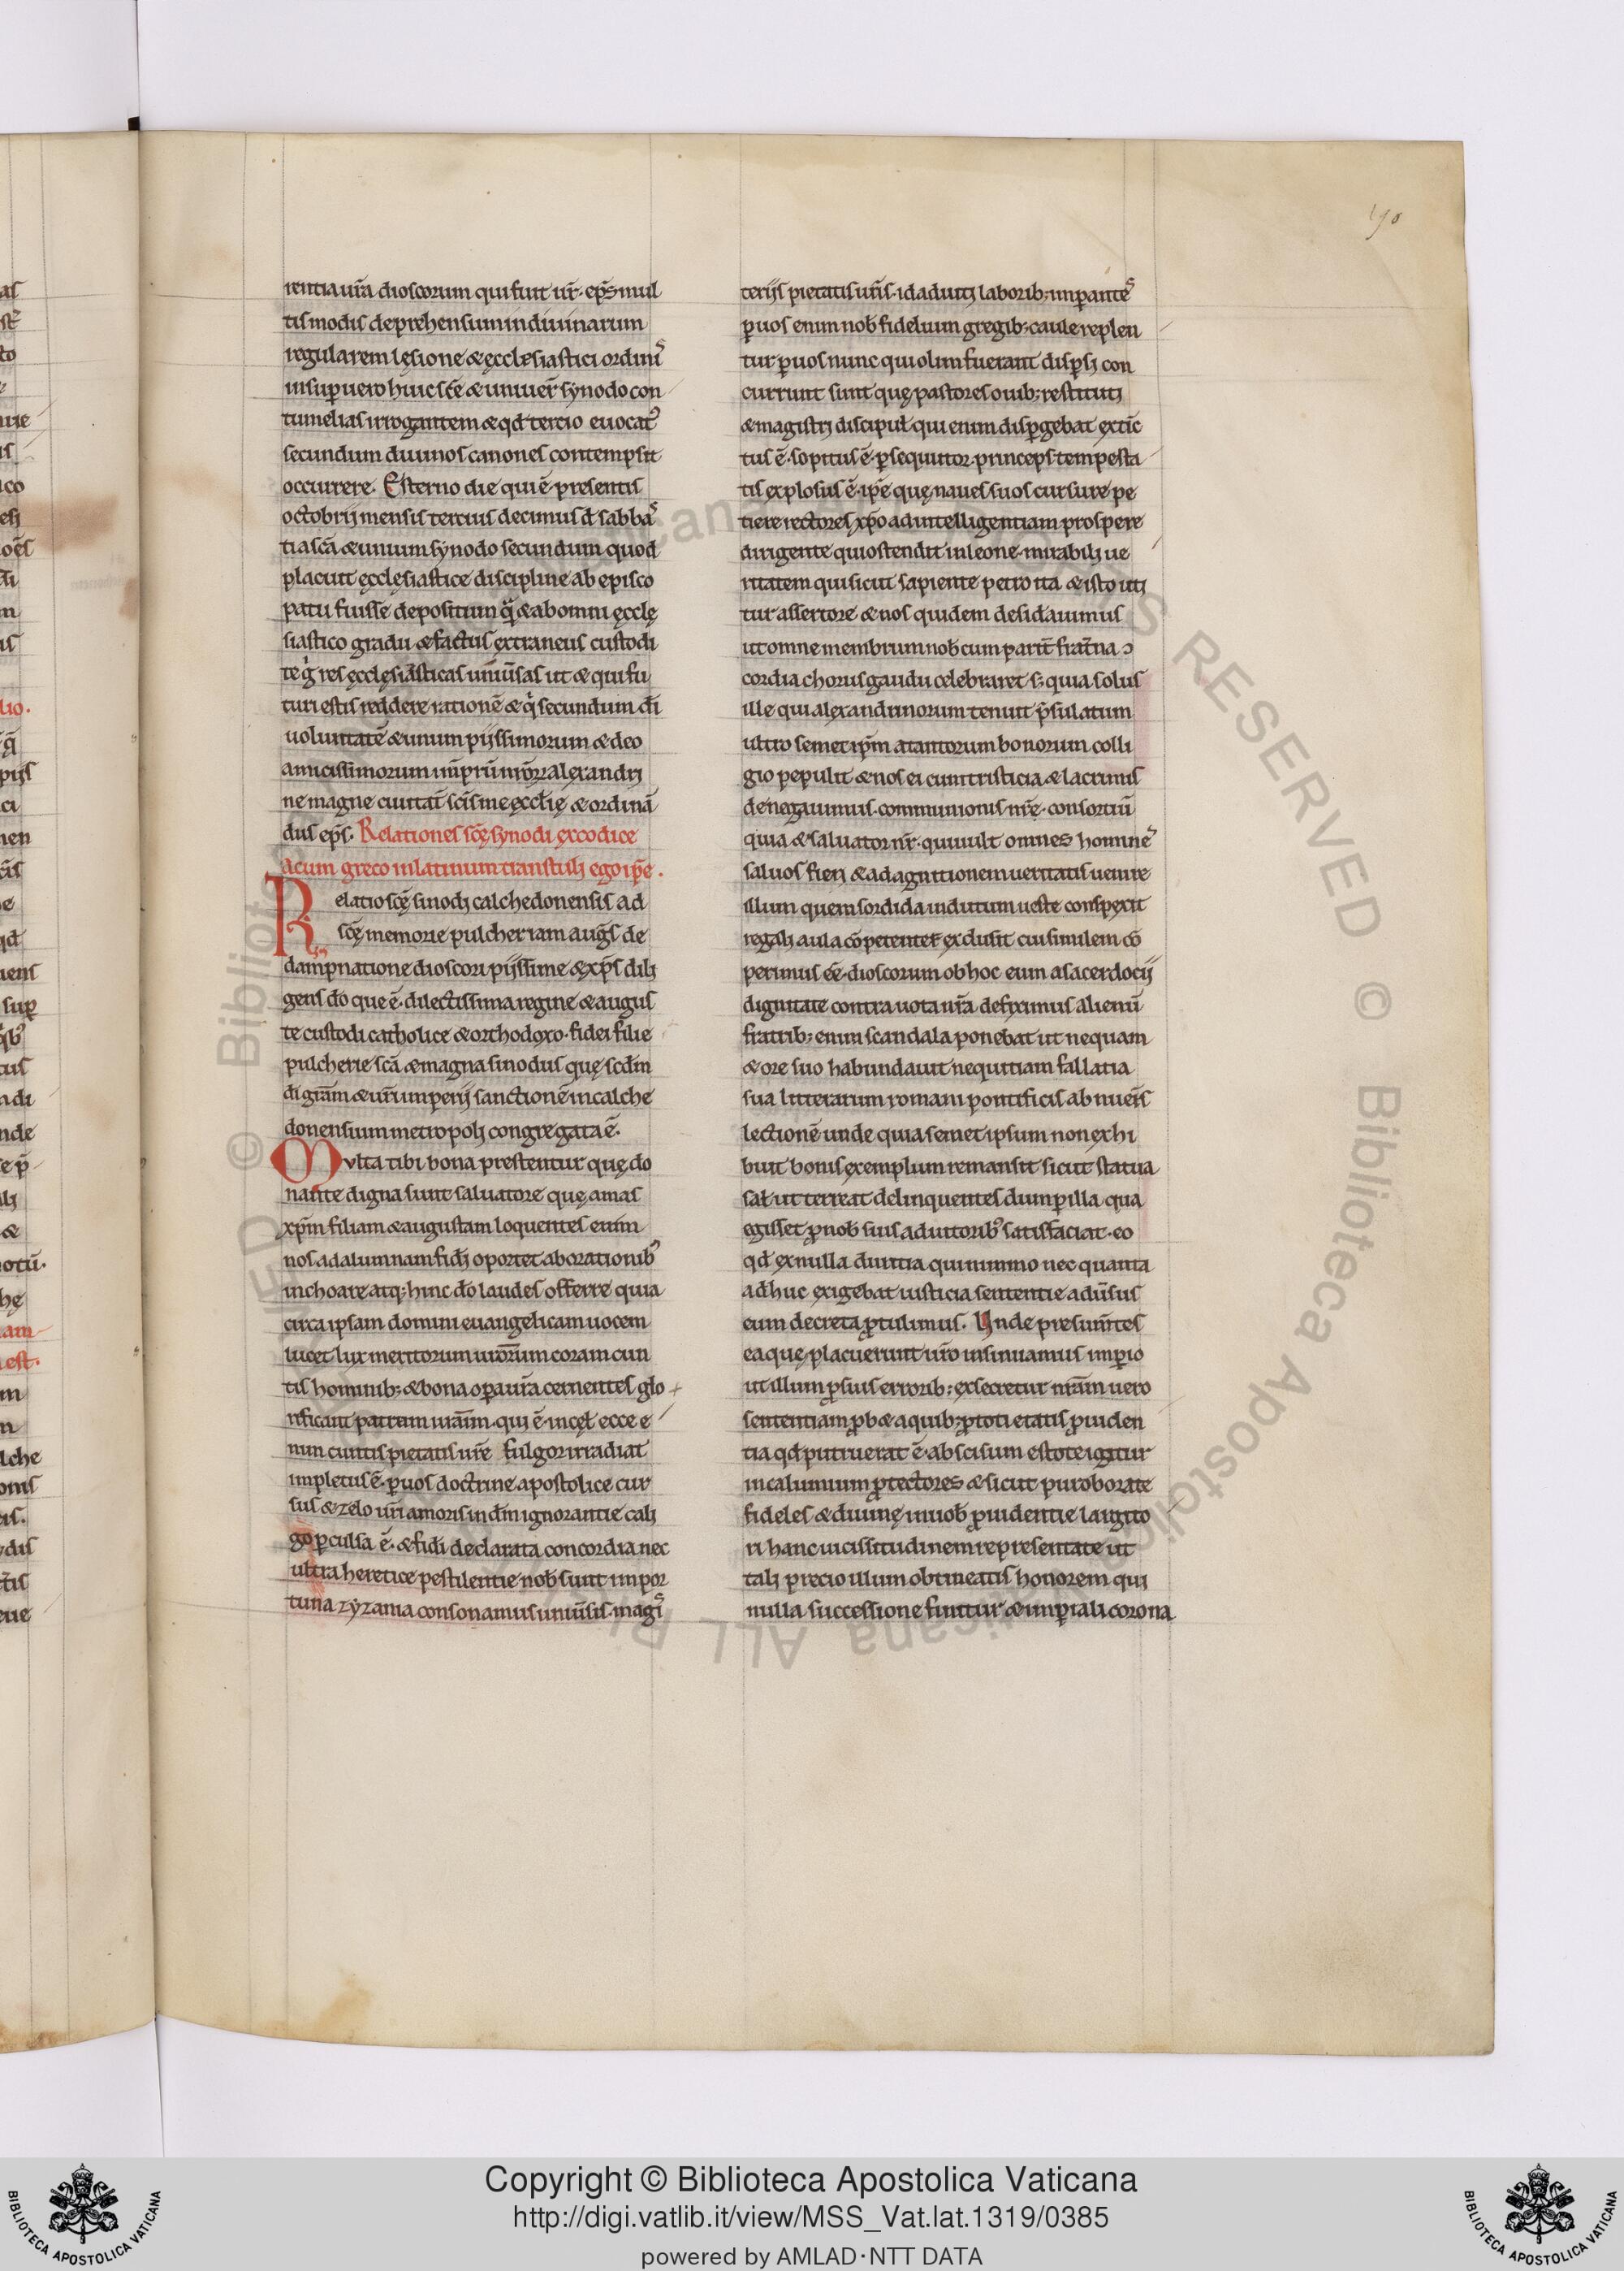 rentia ur̄a dioscorum qui fuit ur̄ · ep̄s mul
tis modis deprehensum in diuinarum
regularem lęsione & ęcclesiastici ordinis
insuꝑ uero huic sc̄e & uniuer̄ synodo con
tumelias irrogantem & qd̄ tercio euocatꝰ
secundum diuinos canones contempsit
occurrere. Esterno die qui ē presentis
octobrij mensis tercius decimus
tia sc̄a & uniuīm synodo secundum quod
placuit ęcclesiastice discipline ab episco
patu fuisse depositum & ab omni ęcclę
siastico gradu & factus extraneus custodi
te res ęcclęsiasticas uniūsas ut & qui fu
turi estis reddere rationē & secundum dī
uoluntatē & unum pijssimorum & deo
amicissimorum alexandri
ne magne ciuitat̄ sc̄is me ęccl̄ię & ordinā
dus ep̄s. Relationes sc̄ę synodi ex codice
acum greco in latinum transtuli ego ip̄e.
Relatio sc̄ę sinodi calchedonensis ad
sc̄ę memorie pulcheriam auḡs de
dampnatione dioscori pijssime & xp̄s dili
gens dō que ē · dilectissima regine & augus
te custodi catholice & orthodoxo · fidei filie
pulcherie sc̄a & magna sinodus quę scd̄m
dī grām & ur̄i imperij sanctionē in calche
donensium metropoli congregata ē.
Multa tibi bona prestentur quę do
nante digna sunt saluatore quę amas
xp̄m filiam & augustam loquentes enim
nos ad alumnam fidi oportet ab orationibꝰ
inchoare atq; hinc dō laudes offerre quia
circa ipsam domini euangelicam uocem
lucet lux meritorum uror̄um coram cun
tis hominib; & bona oꝑa ur̄a cernentes glo
rificant patrem ur̄aīm · qui ē in cęl̄ ecce e
nim cuntis pietatis ur̄e fulgor irradiat
impletus ē · ꝑ uos doctrine apostolice cur
sus & zelo ur̄i amoris in dm̄ ignorantie cali
go ꝑculsa ē · & fidi declarata concordia nec
ultra heretice pestilentie nob̄ sunt impor
tuna zyzania consonamus uniūsis · magis
terijs pietatis ur̄is · id aduiti laborib; imꝑantes
ꝑ uos enim nob̄ fidelium gregib; caule replen
tur ꝑ uos nunc qui olim fuerant disꝑsi con
currunt sunt quę pastores ouib; restituti
& magistri discipul̄ qui enim disꝑgebat extic̄
tus ē · sopitus ē · ꝑsequitor · princeps tempesta
tis explosus ē · ip̄e quę naues suos cursu repe
tiere rectores xp̄o ad intelligentiam prospere
dirigente qui ostendit in leone · mirabili ue
ritatem qui sicut sapiente petro ita & isto uti
tur assertore & nos quidem desidauimus
ut omne membrum nob̄ cum parit̄ frat̄na ↄ
cordia chorus gaudii celebraret s; quia solus
ille qui alexandrinorum tenuit p̄sulatum
ultro semet ip̄m a tantorum bonorum colli
gio pepulit & nos ei cum tristicia & lacrimis
denegauimus · communionis nr̄e · consortiū
quia & saluator nr̄ · qui uult omnes homines
saluos fieri & ad agnitionem ueritatis uenire
illum quem sordida indutum ueste conspexit
regali aula cōpetenter exclusit cui similem cō
perimus eē · dioscorum ob hoc eum a sacerdocij
dignitate contra uota nr̄a defiximus alienū
fratrib; enim scandala ponebat ut nequam
& ore suo habundauit nequitiam fallatia
sua litterarum romani pontificis abnueīs
lectionē unde quia semet ipsum non exhi
buit bonis exemplum remansit sicut statua
sal̄ ut terreat delinquentes dum ꝑ illa qua
egisset ꝓ nob̄ suis adiutoribꝰ satisfaciat · eo
qd̄ ex nulla duritia quinimmo nec quanta
adhuc exigebat iusticia sententie adūsus
eum decreta ꝓtulimus. Unde presum̄tes
ea quę placuerunt ur̄o insinuamus imꝑio
ut illum ꝑ suis errorib; exsecretur nr̄aīm uero
sententiam ꝓb& a quib; ꝓ toti etatis ꝓuiden
tia qd̄ putruerat ē · abscisum estote igitur
incalumium ꝓtectores & sicut puroborate
fideles & diuinę in uob̄ ꝓuidentie largito
ri hanc uicissitudinem representate ut
tali precio illum obtineatis honorem qui
nulla successione finitur & imꝑiali corona
Copyright © Biblioteca Apostolica Vaticana
http://digi.vatlib.it/view/MSS_Vat.lat.1319/0385
powered by AMLAD·NTT DATA